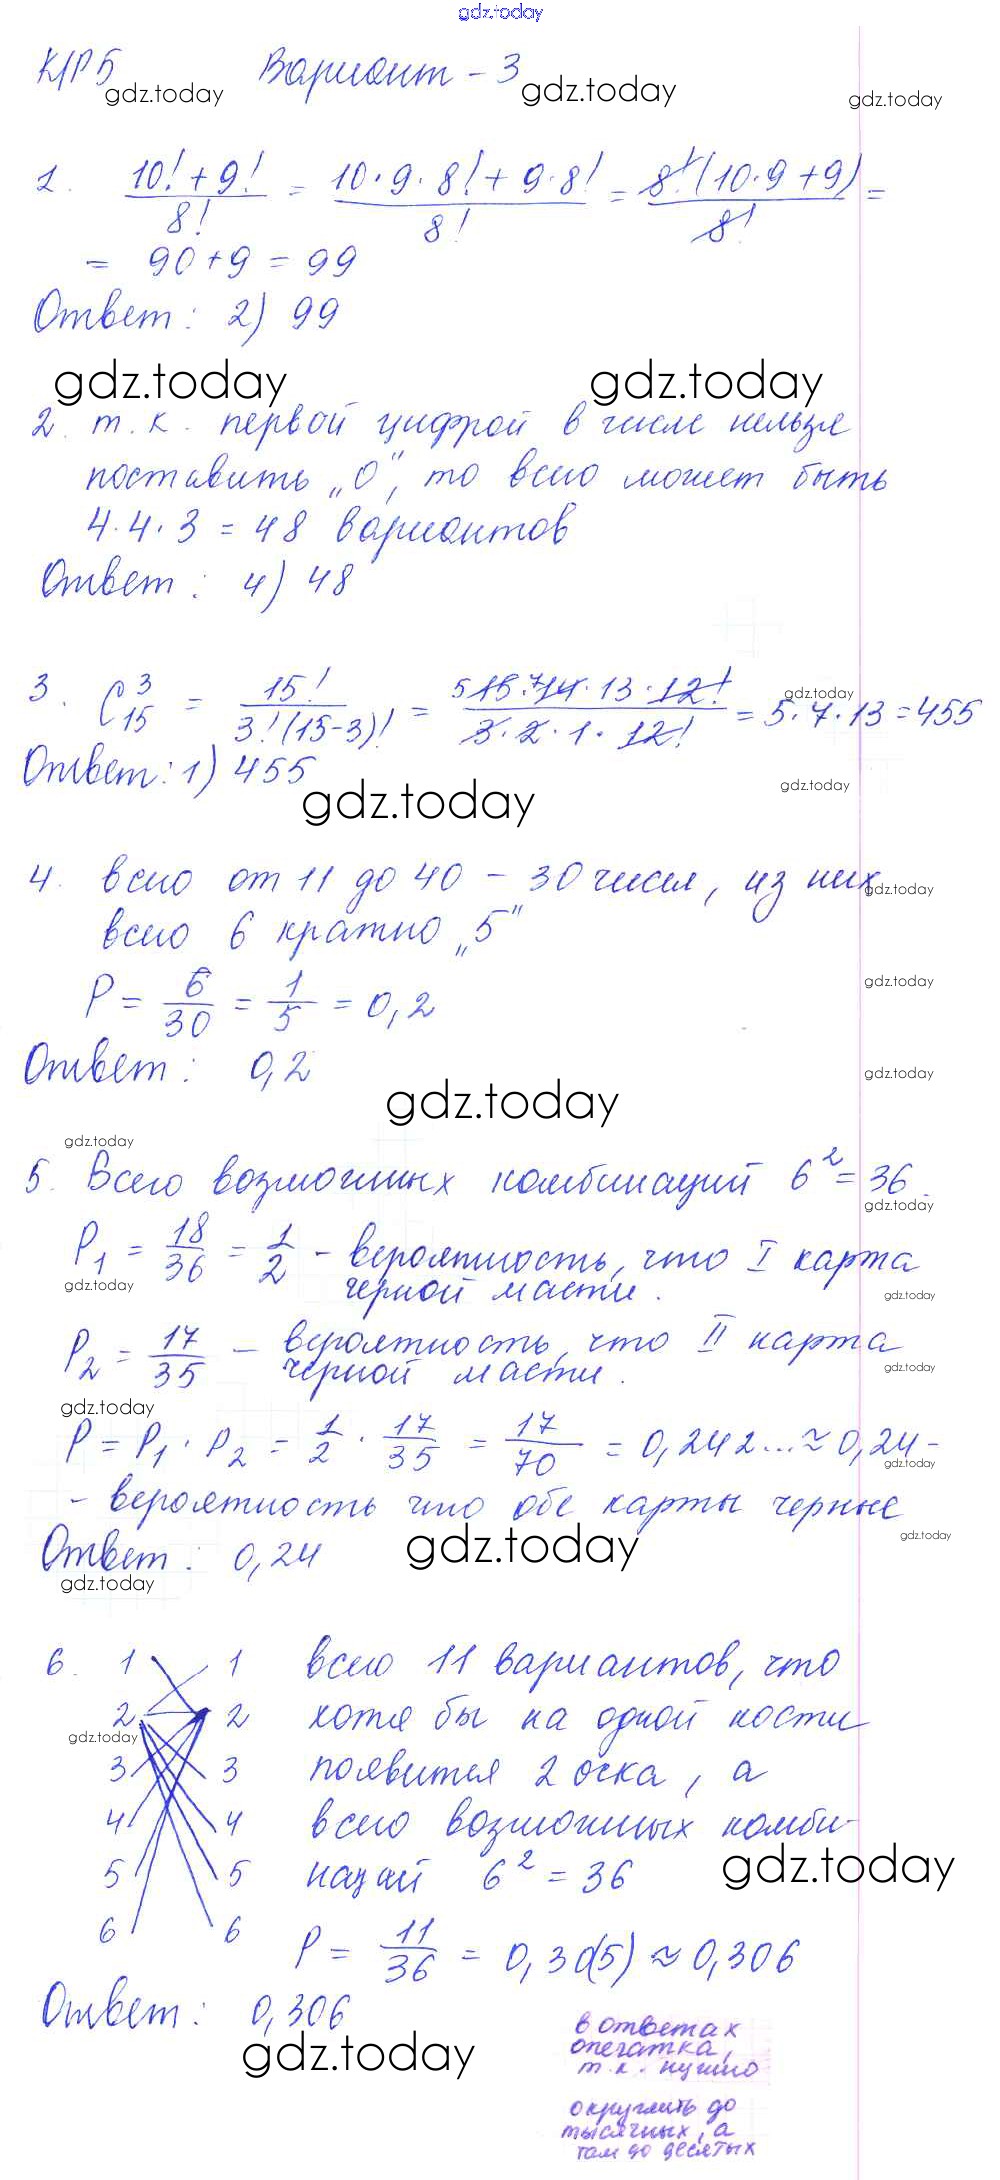 gdz.today
К/Р 5 Вариант - 3
gdz.today gdz.today gdz.today
1. (10! + 9!)/8! = (10·9·8! + 9·8!)/8! = 8!(10·9+9)/8! =
= 90+9 = 99
Ответ: 2) 99
gdz.today gdz.today
2. т.к. первой цифрой в числе нельзя
поставить „0”, то всего может быть
4·4·3 = 48 вариантов
Ответ: 4) 48
3. C³₁₅ = 15!/(3!(15-3)!) = (5 15·7 14·13·12!)/(3·2·1·12!) = 5·7·13=455
gdz.today
Ответ: 1) 455
gdz.today gdz.today
4. всего от 11 до 40 - 30 чисел, из них
gdz.today
всего 6 кратно „5”
P = 6/30 = 1/5 = 0,2
gdz.today
Ответ: 0,2
gdz.today gdz.today
gdz.today
5. Всего возможных комбинаций 6² = 36.
gdz.today
P₁ = 18/36 = 1/2 - вероятность, что I карта
черной масти.
gdz.today gdz.today
P₂ = 17/35 - вероятность, что II карта
черной масти.
gdz.today
gdz.today
P = P₁ · P₂ = 1/2 · 17/35 = 17/70 = 0,242... ≈ 0,24 -
gdz.today
- вероятность что обе карты черные
gdz.today gdz.today
Ответ: 0,24
gdz.today
6. 1 1 всего 11 вариантов, что
2 2 хотя бы на одной кости
gdz.today
3 3 появится 2 очка, а
4 4 всего возможных комби-
gdz.today
5 5 наций 6² = 36
6 6
P = 11/36 = 0,30(5) ≈ 0,306
Ответ: 0,306
gdz.today
в ответах
опечатка,
т.к. нужно
округлить до
тысячных, а
там до десятых